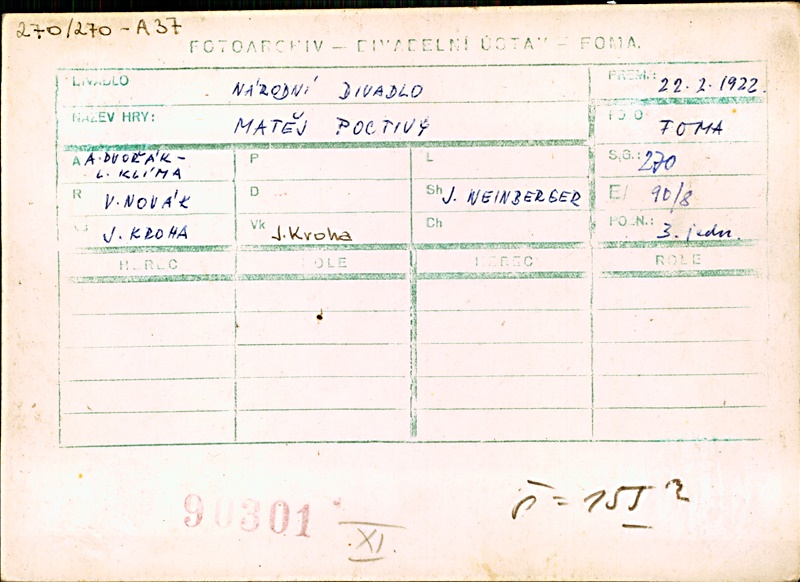 270/270 - A37
FOTOARCHIV — DIVADELNÍ ÚSTAV — FOMA.
DIVADLO NÁRODNÍ DIVADLO PREM.: 22. 2. 1922.
NÁZEV HRY: MATĚJ POCTIVÝ FOTO FOMA
A A. DVOŘÁK - P L SIG.: 270
L. KLÍMA
R V. NOVÁK D Sh J. WEINBERGER E/ 90/8
J. KROHA Vk J. Kroha Ch POZN.: 3. jedn.
HEREC ROLE HEREC ROLE
90301
XI.
š = 155